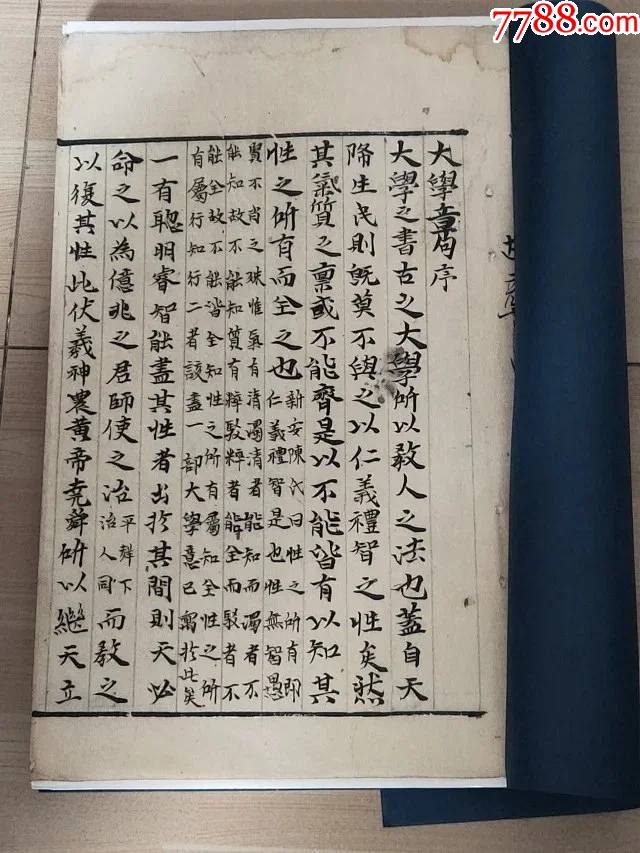 7788.com
大學章句序
大學之書古之大學所以敎人之法也蓋自天
降生民則旣莫不與之以仁義禮智之性矣然
其氣質之稟或不能齊是以不能皆有以知其
性之所有而全之也新安陳氏曰性之所有即
仁義禮智是也性無智愚
賢不肖之殊惟氣有清濁清者能知而濁者不
能知故不能知質有粹駁粹者能全而駁者不
能全故不能皆全知性之所有屬知全性之所
有屬行知行二者該盡一部大學意已寓於此矣
一有聰明睿智能盡其性者出於其間則天必
命之以為億兆之君師使之治平聲下治人同而敎之
以復其性此伏羲神農黄帝堯舜所以繼天立